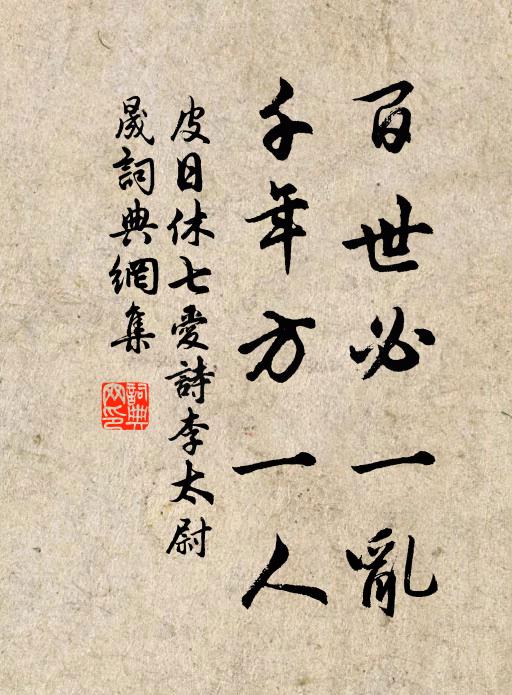 百世必一亂
千年方一人
皮日休七愛詩李太尉
晟詞典網集
詞典
网印